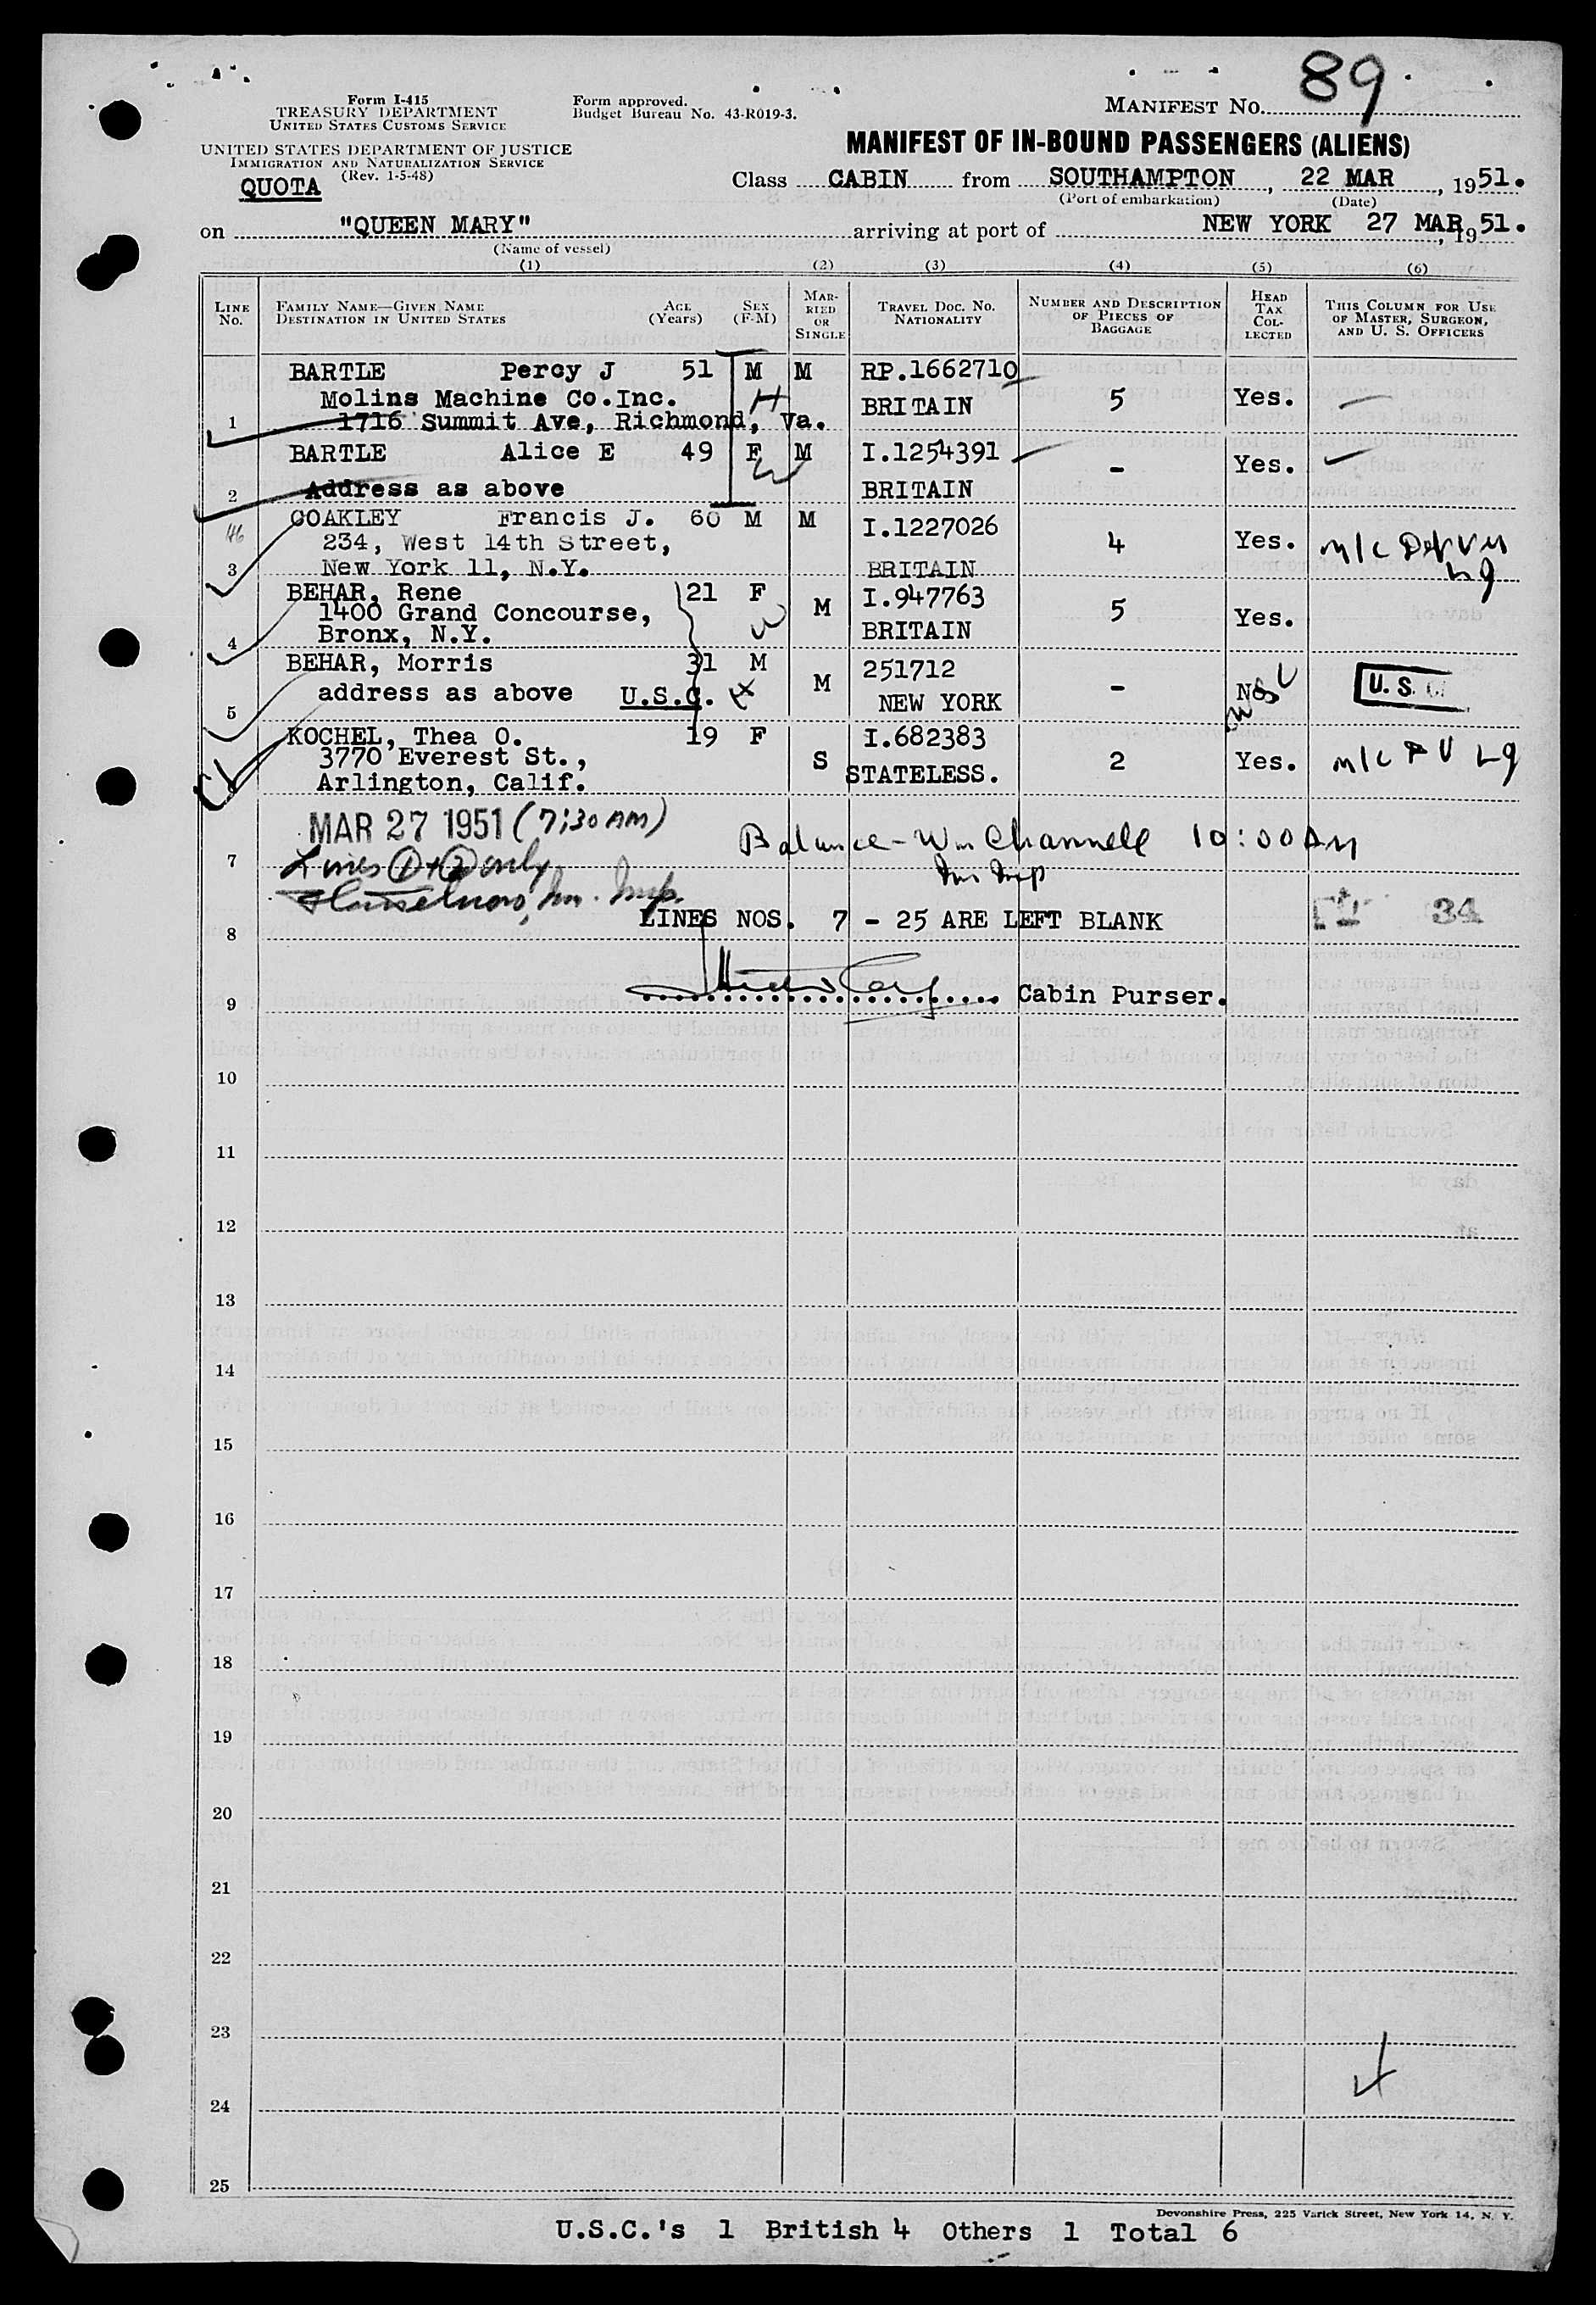 89
Form I-415
TREASURY DEPARTMENT
UNITED STATES CUSTOMS SERVICE
Form approved.
Budget Bureau No. 43-R019-3.
MANIFEST NO.
UNITED STATES DEPARTMENT OF JUSTICE
IMMIGRATION AND NATURALIZATION SERVICE
(Rev. 1-5-48)
QUOTA
MANIFEST OF IN-BOUND PASSENGERS (ALIENS)
Class CABIN from SOUTHAMPTON, 22 MAR, 1951.
(Port of embarkation) (Date)
on "QUEEN MARY" arriving at port of NEW YORK 27 MAR, 1951.
(Name of vessel)
(1) (2) (3) (4) (5) (6)
LINE NO.
FAMILY NAME—GIVEN NAME
DESTINATION IN UNITED STATES
AGE (Years)
SEX (F-M)
MARRIED OR SINGLE
TRAVEL DOC. NO.
NATIONALITY
NUMBER AND DESCRIPTION OF PIECES OF BAGGAGE
HEAD TAX COLLECTED
THIS COLUMN FOR USE OF MASTER, SURGEON, AND U. S. OFFICERS
BARTLE Percy J 51 M M RP.1662710
Molins Machine Co.Inc. H BRITAIN 5 Yes.
1 1716 Summit Ave, Richmond, Va.
BARTLE Alice E 49 F M I.1254391 - Yes.
W
2 Address as above BRITAIN
COAKLEY Francis J. 60 M M I.1227026
46 234, West 14th Street, 4 Yes. m/c
3 New York 11, N.Y. BRITAIN Lg
BEHAR, Rene 21 F M I.947763 5 Yes.
1400 Grand Concourse, W
4 Bronx, N.Y. BRITAIN
BEHAR, Morris 31 M M 251712 - No
address as above U.S.C. H NEW YORK U.S.
5
KOCHEL, Thea O. 19 F I.682383
3770 Everest St., S STATELESS. 2 Yes. m/c Lg
Arlington, Calif.
MAR 27 1951 (7:30 AM)
Balance - Wm Channell 10:00 AM
7 Lines 1 + 2 only
Imm Insp
Imm. Insp.
LINES NOS. 7 - 25 ARE LEFT BLANK 34
8
9 Cabin Purser.
10
11
12
13
14
15
16
17
18
19
20
21
22
23
24
25
Devonshire Press, 225 Varick Street, New York 14, N. Y.
U.S.C.'s 1 British 4 Others 1 Total 6